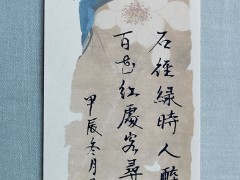 石徑緑時人醉
百花紅處客尋
甲辰冬月